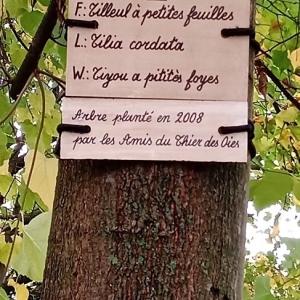 F: Tilleul à petites feuilles
L: Tilia cordata
W: Tiyou a pititès foyes
Arbre planté en 2008
par les Amis du Thier des Oies